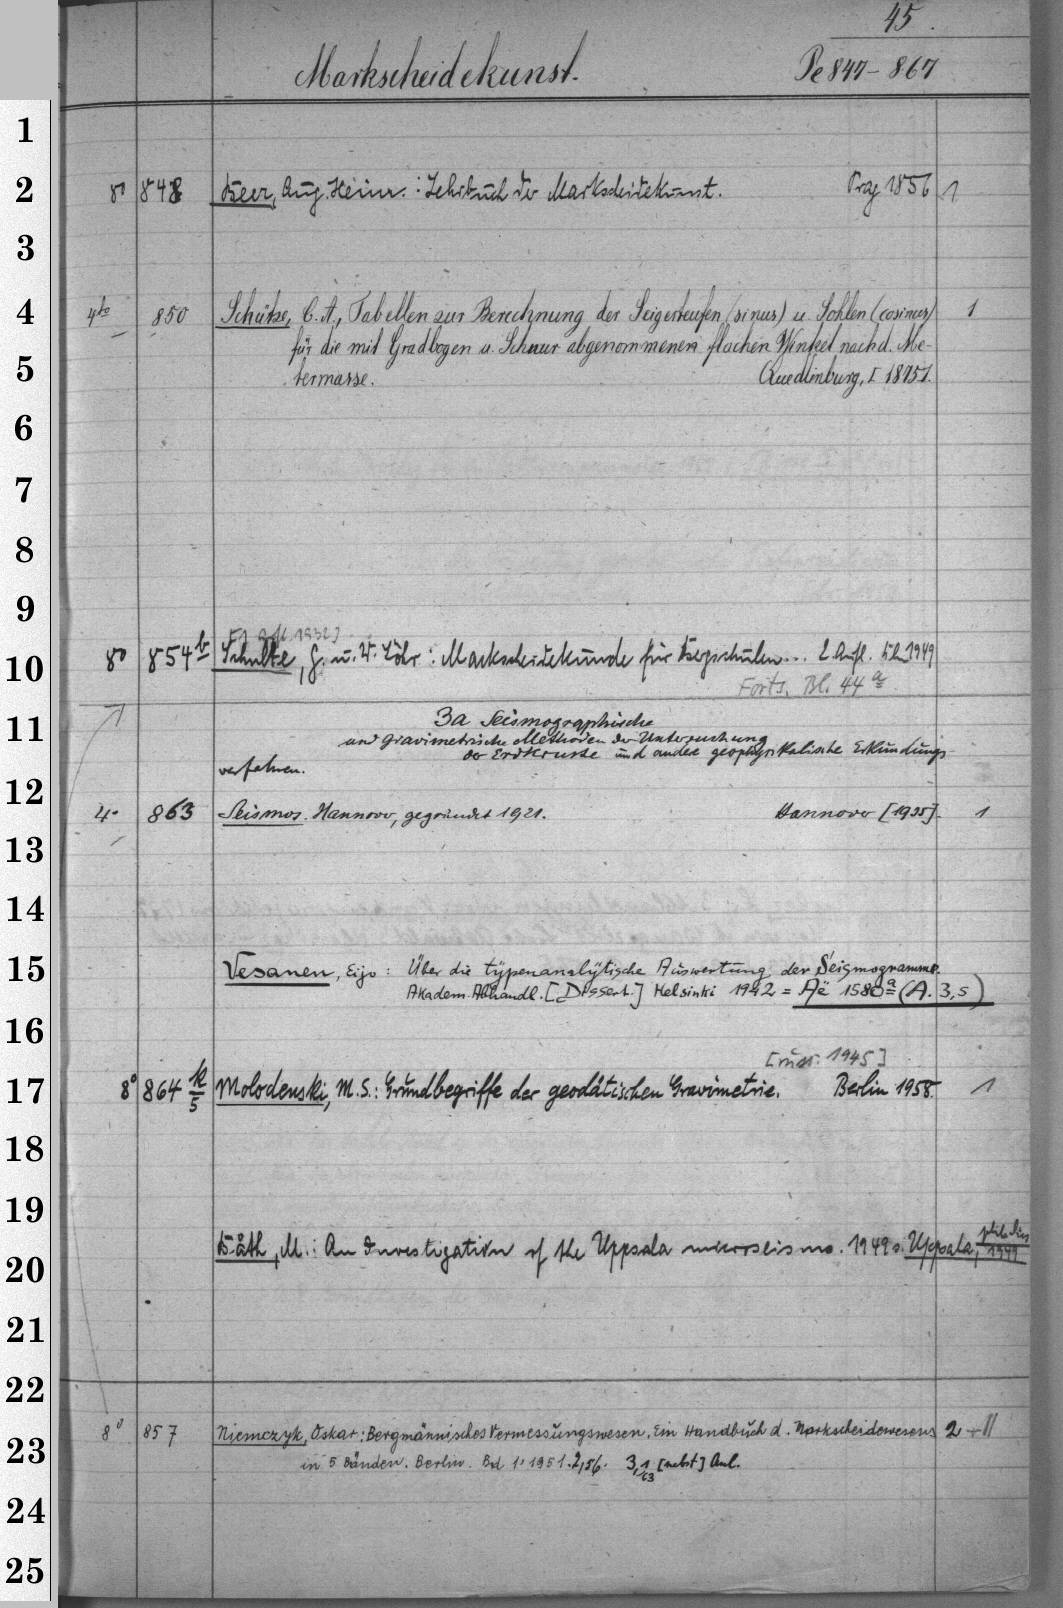 45.
Markscheidekunst.
Pe 847-867
1
2
8° 848 Beer, Aug. Heinr.: Lehrbuch der Markscheidekunst. Prag 1856 1
3
4
4to 850 Schütze, C. A., Tabellen zur Berechnung der Seigerteufen (sinus) u. Sohlen (cosinus) 1
für die mit Gradbogen u. Schnur abgenommenen flachen Winkel nach d. Me-
5
termasse. Quedlinburg, I 1875].
6
7
8
9
1932]
10
8° 854 b Schulte, G. u. W. Löhr: Markscheidekunde für Bergschulen... 2. Aufl. Bln 1949
Forts. Bl. 44 a
11
3a Seismographische
und gravimetrische Methoden der Untersuchung
der Erdkruste und andere geophysikalische Erkundungs-
verfahren.
12
4° 863 Seismos. Hannover, gegründet 1921. Hannover [1935]. 1
13
14
15
Vesanen, Eijo: Über die typenanalytische Auswertung der Seismogramme.
Akadem. Abhandl. [Dissert.] Helsinki 1942 = Aë 1580 a (A. 3,5)
16
[russ. 1945]
17
8° 864 k/5 Molodenski, M. S.: Grundbegriffe der geodätischen Gravimetrie. Berlin 1958. 1
18
19
Båth, M.: An Investigation of the Uppsala microseisms. 1949 s. Uppsala, 1949
20
21
22
8° 857 Niemczyk, Oskar: Bergmännisches Vermessungswesen. Ein Handbuch d. Markscheidewesens 2
23
in 5 Bänden. Berlin. Bd 1, 1951. 2,56. 3,1 63 [nebst] Anl.
24
25